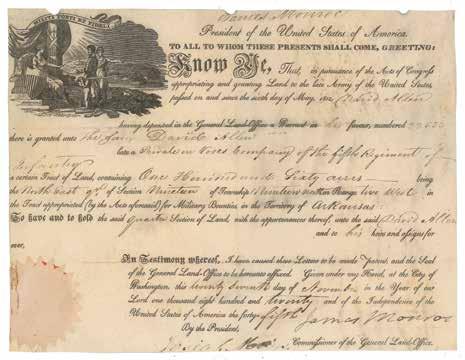 MILITE FORTI ET FIDELI
James Monroe
President of the United States of America.
TO ALL TO WHOM THESE PRESENTS SHALL COME, GREETING:
Know Ye, That, in pursuance of the Acts of Congress
appropriating and granting Land to the late Army of the United States,
passed on and since the sixth day of May, 1812, David Allen
having deposited in the General Land-Office a Warrant in his favor, numbered
there is granted unto the said David Allen
late a Private in Vose's Company of the fifth Regiment of
Infantry
a certain Tract of Land, containing One Hundred and Sixty acres being
the North East qr. of Section Nineteen of Township Nineteen in Range five West in
the Tract appropriated (by the Acts aforesaid) for Military Bounties, in the Territory of Arkansas:
To have and to hold the said quarter Section of Land, with the appurtenances thereof, unto the said David Allen
and to his heirs and assigns for
ever.
In Testimony whereof, I have caused these Letters to be made Patent, and the Seal
of the General Land-Office to be hereunto affixed. Given under my Hand, at the City of
Washington, this twenty seventh day of November in the Year of our
Lord one thousand eight hundred and twenty and of the Independence of the
United States of America the forty-fifth
By the President, James Monroe
Commissioner of the General Land-Office.